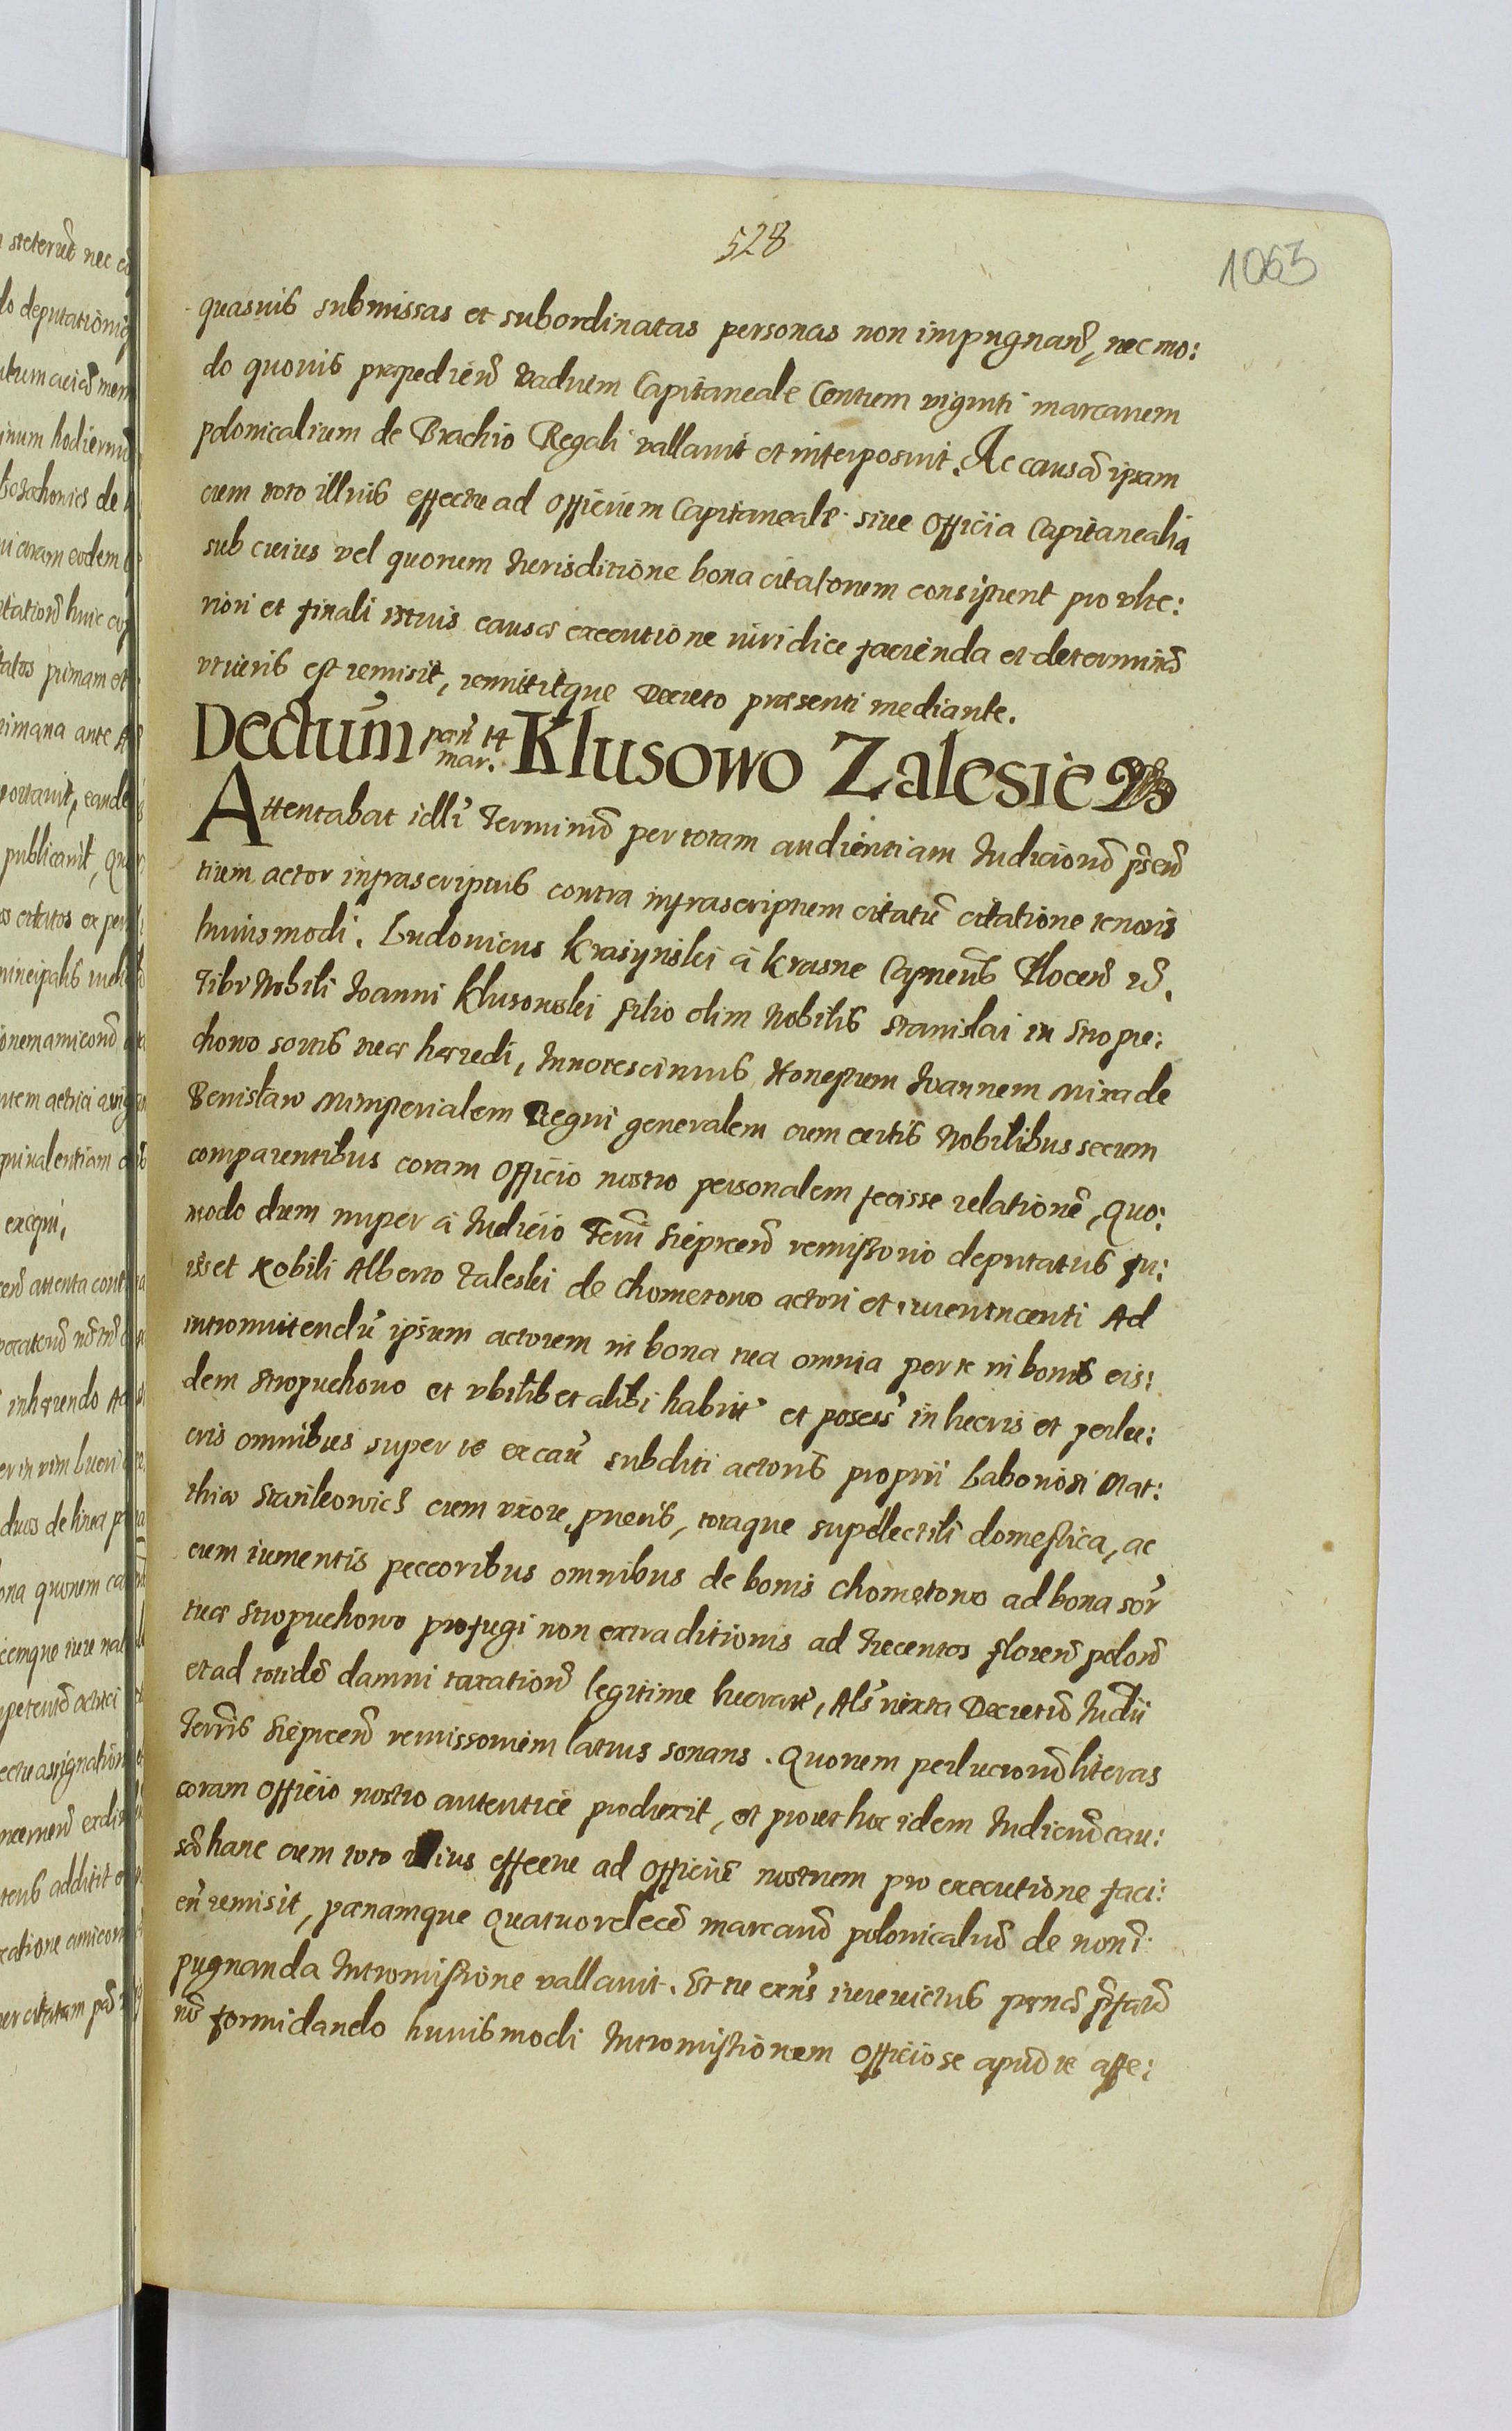 528
1063
quasuis submissas et subordinatas personas non impugnand, nec mo:
do quouis præpediend vadium Capitaneale Centum viginti marcarum
polonicalium de Brachio Regali vallauit et interposuit. Ac causã ipsam
cum toto illius effectu ad Officium Capitaneale siue Officia Capitanealia
sub cuius vel quorum Jurisditione bona citatorum consistent pro vlte:
riori et finali istius causæ executione iuridice facienda et determinã
vt iuris est remisit, remittitque Decreto præsenti mediante.
Dectum pæn 14 mar. Klusowo Zalesie
Attentabat illi' Terminũ per totam audientiam Judiciorũ pręn
tium actor infrascriptus contra infrascriptum citatũ citatione tenoris
huiusmodi. Ludouicus Krasynski a Krasne Capneus Plocen
Tibi Nobili Joanni Klusowski filio olim Nobilis Stanislai in Stropu:
chowo sortis tuæ hæredi, Innotescimus Honestum Joannem Mixa de
Benislaw Ministerialem Regni generalem cum certis Nobilibus secum
comparentibus coram Officio nostro personalem fecisse relationẽ, quo:
modo dum nuper à Judicio Terri Sieprcen remissorio deputatus fu:
isset Nobili Alberto Zaleski de Chometowo actori et iurevincenti Ad
intromittendũ ipsum actorem in bona tua omnia per te in bonis eis:
dem Stropuchowo et vbilibet alibi habit' et posess' in lucris et perlu:
cris omnibus super te ex cau' subditi actoris proprii Laboriosi Mat:
thiæ Stanikowicz cum vxore, pueris, totaque supellectili domestica, ac
cum iumentis peccoribus omnibus de bonis Chometowo ad bona sor'
tuæ Stropuchowo profugi non extraditionis ad trecentos floren polon
et ad totidẽ damni taxation legitime lucrat', Als' iuxta Decretũ Judii
Terris Sieprcen remissorium latius sonans. Quorum perlucrorũ literas
coram Officio nostro autentice produxit, et prout hoc idem Judiciũ cau:
sã hanc cum toto illius effectu ad Officiũ nostrum pro executione faci:
en remisit, pænamque Quatuordecẽ marcarũ polonicaliũ de non i
pugnanda Intromissione vallauit. Et tu exns iurevictus pænã pfatã
nõ formidando huiusmodi Intromissionem Officiose apud te affe: